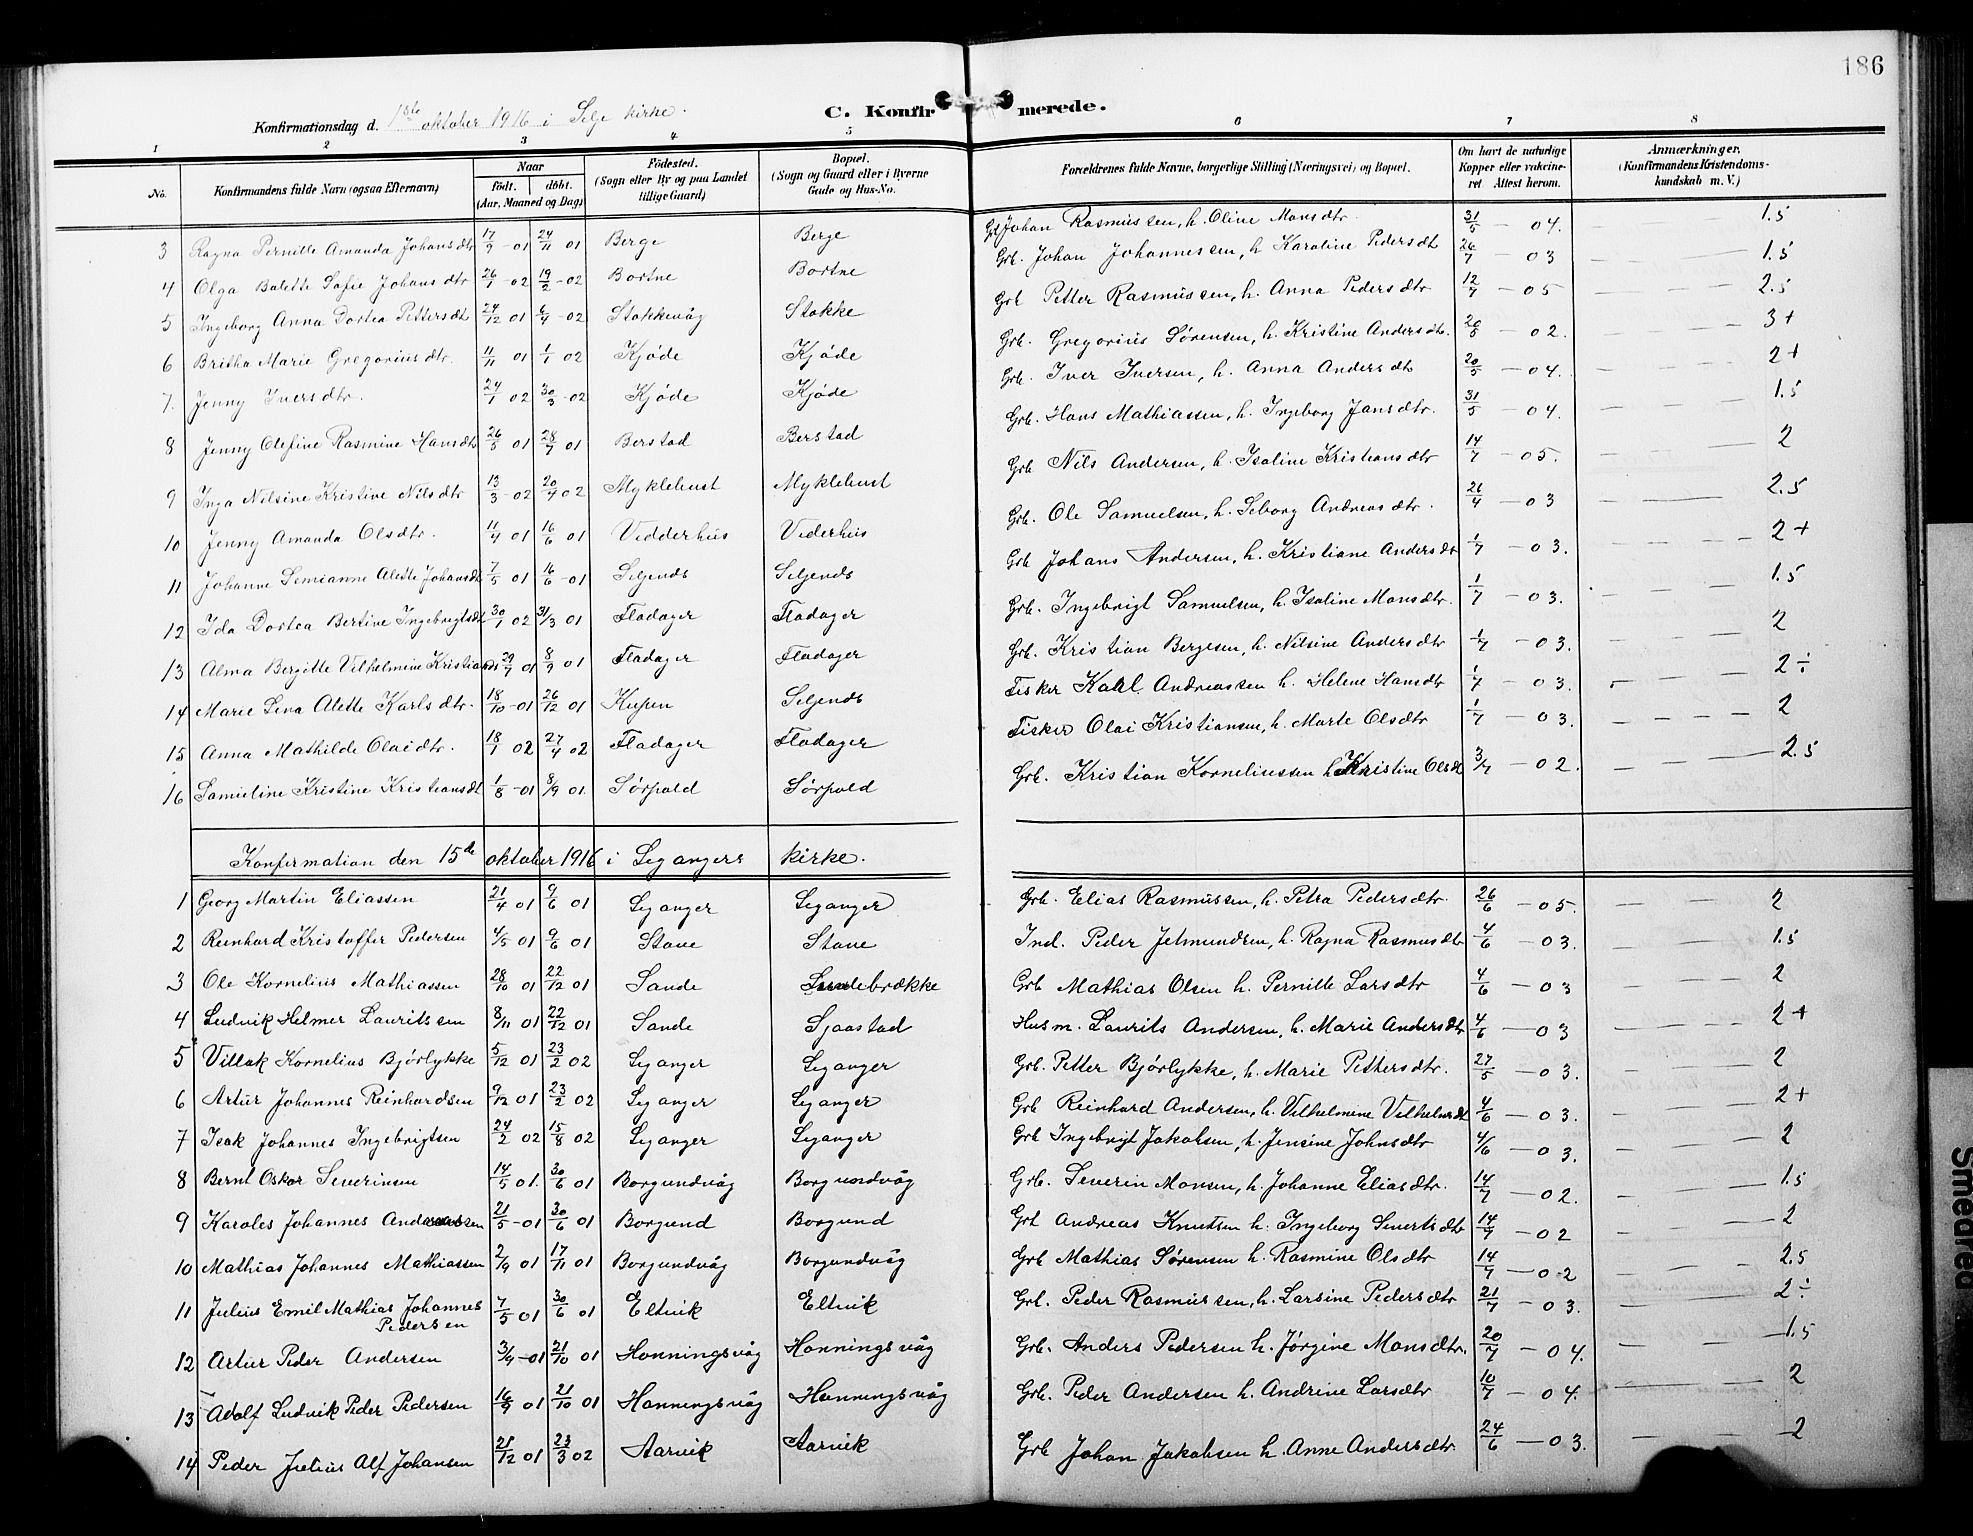 186
Konfirmationsdag d. 1ste oktober 1916 i Selje kirke. C. Konfirmerede.
1 2 3 4 5 6 7 8
No. Konfirmandens fulde Navn (ogsaa Efternavn) Naar födt. döbt. (Aar, Maaned og Dag) Födested. (Sogn eller By og paa Landet tillige Gaard) Bopæl. (Sogn og Gaard eller i Byerne Gade og Hus-No. Forældrenes fulde Navne, borgerlige Stilling (Næringsvei) og Bopæl. Om havt de naturlige Kopper eller vakcineret Attest herom. Anmærkninger. (Konfirmandens Kristendomskundskab m. V.)
3 Ragna Pernille Amanda Johansdtr 17/9 - 01 24/11 01 Berge Berge Grb Johan Rasmussen, h. Oline Monsdtr. 31/5 - 04. 1.5
4 Olga Balette Sofie Johansdtr 26/1 - 02 19/2 - 02 Bortne Bortne Grb. Johan Johannessen, h. Karoline Pedersdt 26/7 - 03 1.5
5 Ingeborg Anna Dortea Pettersdt 24/12 01 6/4 - 02 Stokkevåg Stokke Grb Petter Rasmussen, h. Anna Pedersdtr 12/7 - 05 2.5
6 Britha Marie Gregoriusdtr. 11/11 01 1/1 02 Kjøde Kjøde Grb. Gregorius Sørensen, h. Kristine Andersdtr. 20/5 - 02. 3+
7. Jenny Iversdtr. 24/1 02 30/3 - 02 Kjøde Kjøde Grb. Iver Iversen, h. Anna Andersdtr 20/5 - 04. 2+
8 Jenny Olefine Rasmine Hansdtr 26/5 01 28/7 01 Berstad Berstad Grb. Hans Mathiassen, h. Ingeborg Jansdtr. 31/5 - 04. 1.5
9 Inga Nilsine Kristine Nilsdtr 13/3 - 02 20/4 02 Myklebust Myklebust Grb Nils Andersen, h. Isaline Kristiansdtr 14/7 - 05. 2
10 Jenny Amanda Olsdtr. 11/4 01 16/6 01 Vedderhus Vederhus Grb. Ole Samuelsen, h. Seborg Andreasdtr. 26/4 - 03 2.5
11 Johanne Semianne Alette Johansdt 7/5 01 16/6 - 01 Seljends Seljends Grb Johans Andersen, h. Kristiane Andersdtr 1/7 - 03. 2+
12 Ida Dortea Bertine Ingebrigtsdt 30/1 02 31/3 01 Fladager Fladager Grb. Ingebrigt Samuelsen, h. Isaline Monsdtr. 1/7 - 03. 1.5
13 Alma Bergitte Vilhelmine Kristiansdt 29/7 01 8/9 01 Fladager Fladager Grb. Kristian Bergesen, h. Nilsine Andersdtr 1/7 - 03. 2
14 Marie Lina Alette Karlsdtr. 18/10 - 01 26/12 01 Kupen Seljends Fisker Karl Andreassen h. Helene Hansdtr 1/7 - 03. 2÷
15 Anna Mathilde Olaidtr. 18/1 02 27/4 02 Fladager Fladager Fisker Olai Kristiansen, h. Marte Olsdtr 1/7 - 03. 2
16 Samueline Kristine Kristiansdt 1/8 - 01 8/9 01. Sørpold Sørpold Grb. Kristian Korneliussen h. Kristine Olsdt 3/7 - 02. 2.5
Konfirmation den 15de oktober 1916 i Leganger kirke.
1 Georg Martin Eliassen 21/4 01 9/6 01 Leganger Leganger Grb. Elias Rasmussen, h. Petra Pedersdtr. 26/6 - 05. 2
2 Reinhard Kristoffer Pedersen 4/5 01 9/6 01 Stave Stave Ind. Peder Jetmundsen, h. Ragna Rasmusdtr 4/6 - 03. 1.5
3 Ole Kornelius Mathiassen 28/10 01 22/12 01 Sande Sandebrække Grb Mathias Olsen h. Pernille Larsdtr 4/6 - 03 2
4 Ludvik Helmer Lauritssen 8/11 01 22/12 01 Sande Sjaastad Husm. Laurits Andersen, h. Marie Andersdtr 4/6 - 03 2+
5 Villak Kornelius Bjørlykke 5/12 01 23/2 02 Leganger Leganger Grb. Petter Bjørlykke, h. Marie Pettersdtr. 27/5 - 03. 2
6 Artur Johannes Reinhardsen 9/12 01 23/2 02 Leganger Leganger Grb Reinhard Andersen, h. Vilhelmine Vilhelmsdt 4/6 - 03. 2+
7 Isak Johannes Ingebrigtsen 24/2 02 15/8 02 Leganger Leganger Grb Ingebrigt Jakobsen, h. Jensine Johnsdtr 4/6 - 03. 2
8 Bernt Oskar Severinsen 14/5 01. 30/6 01 Borgundvåg Borgundvåg Grb. Severin Monsen, h. Johanne Eliasdtr. 14/7 - 02. 1.5
9 Karoles Johannes Andreassen 21/5 - 01 30/6 01 Borgund Borgund Grb Andreas Knutsen h. Ingeborg Sivertsdtr 14/7 - 02 2
10 Mathias Johannes Mathiassen 2/9 01 17/11 01 Borgundvåg Borgundvåg Grb Mathias Sørensen h. Rasmine Olsdtr 14/7 - 02 2.5
11 Julius Emil Mathias Johannes Pedersen 7/5 01 30/6 01 Eltvik Eltvik Grb. Peder Rasmussen, h. Larsine Pedersdtr 21/7 - 03. 2÷
12 Artur Peder Andersen 3/9 - 01 21/10 01 Honningsvåg Honningsvåg Grb. Anders Pedersen h. Jørgine Monsdtr. 20/7 - 04. 1.5
13 Adolf Ludvik Peder Pedersen 16/9 01 21/10 01 Honningsvåg Honningsvåg Grb. Peder Andersen h. Andrine Larsdtr 10/7 - 04. 2
14 Peder Julius Alf Johansen 28/12 01 23/3 02 Aarvik Aarvik Grb Johan Jakobsen h. Anne Andersdtr. 24/6 - 03. 2
Smedred